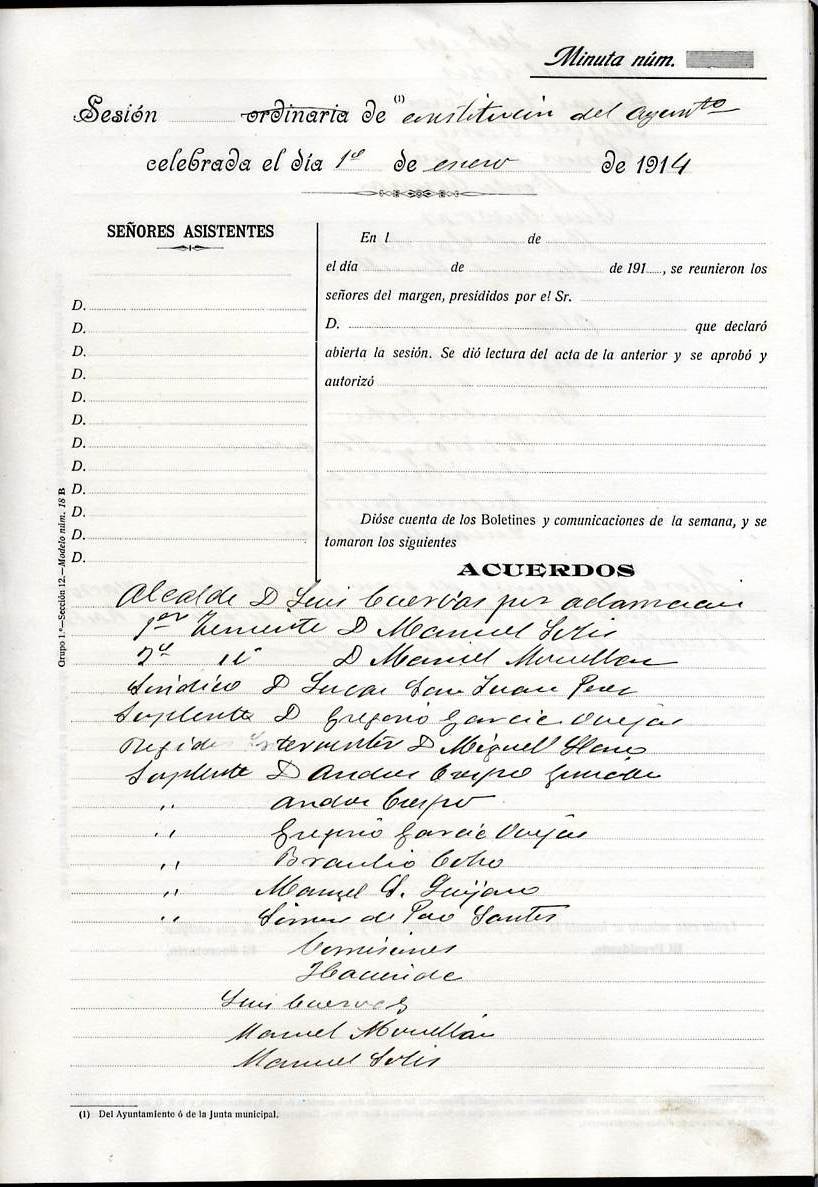 Minuta núm.
Sesión ordinaria de (1) constitución del Ayunto
celebrada el día 1º de enero de 1914
SEÑORES ASISTENTES
D.
D.
D.
D.
D.
D.
D.
D.
D.
D.
D.
D.
En l de
el día de de 191 , se reunieron los
señores del margen, presididos por el Sr.
D. que declaró
abierta la sesión. Se dió lectura del acta de la anterior y se aprobó y
autorizó
Dióse cuenta de los Boletines y comunicaciones de la semana, y se
tomaron los siguientes
ACUERDOS
Alcalde D Luis Cuervas por
1er Teniente D Manuel Solis
2º id D Manuel Movellan
Sindico D Lucas San Juan Perez
Suplente D Gregorio Garcia Ovejas
Regidor Interventor D Miguel Llano
Suplente D Andres Crespo
,, Andres Crespo
,, Gregorio Garcia Ovejas
,, Braulio Cobo
,, Manuel G. Guijano
,, de Pao Santos
Comisiones
Hacienda
Luis Cuervas
Manuel Movellan
Manuel Solis
Grupo 1.º—Sección 12.—Modelo núm. 18 B
(1) Del Ayuntamiento ó de la Junta municipal.